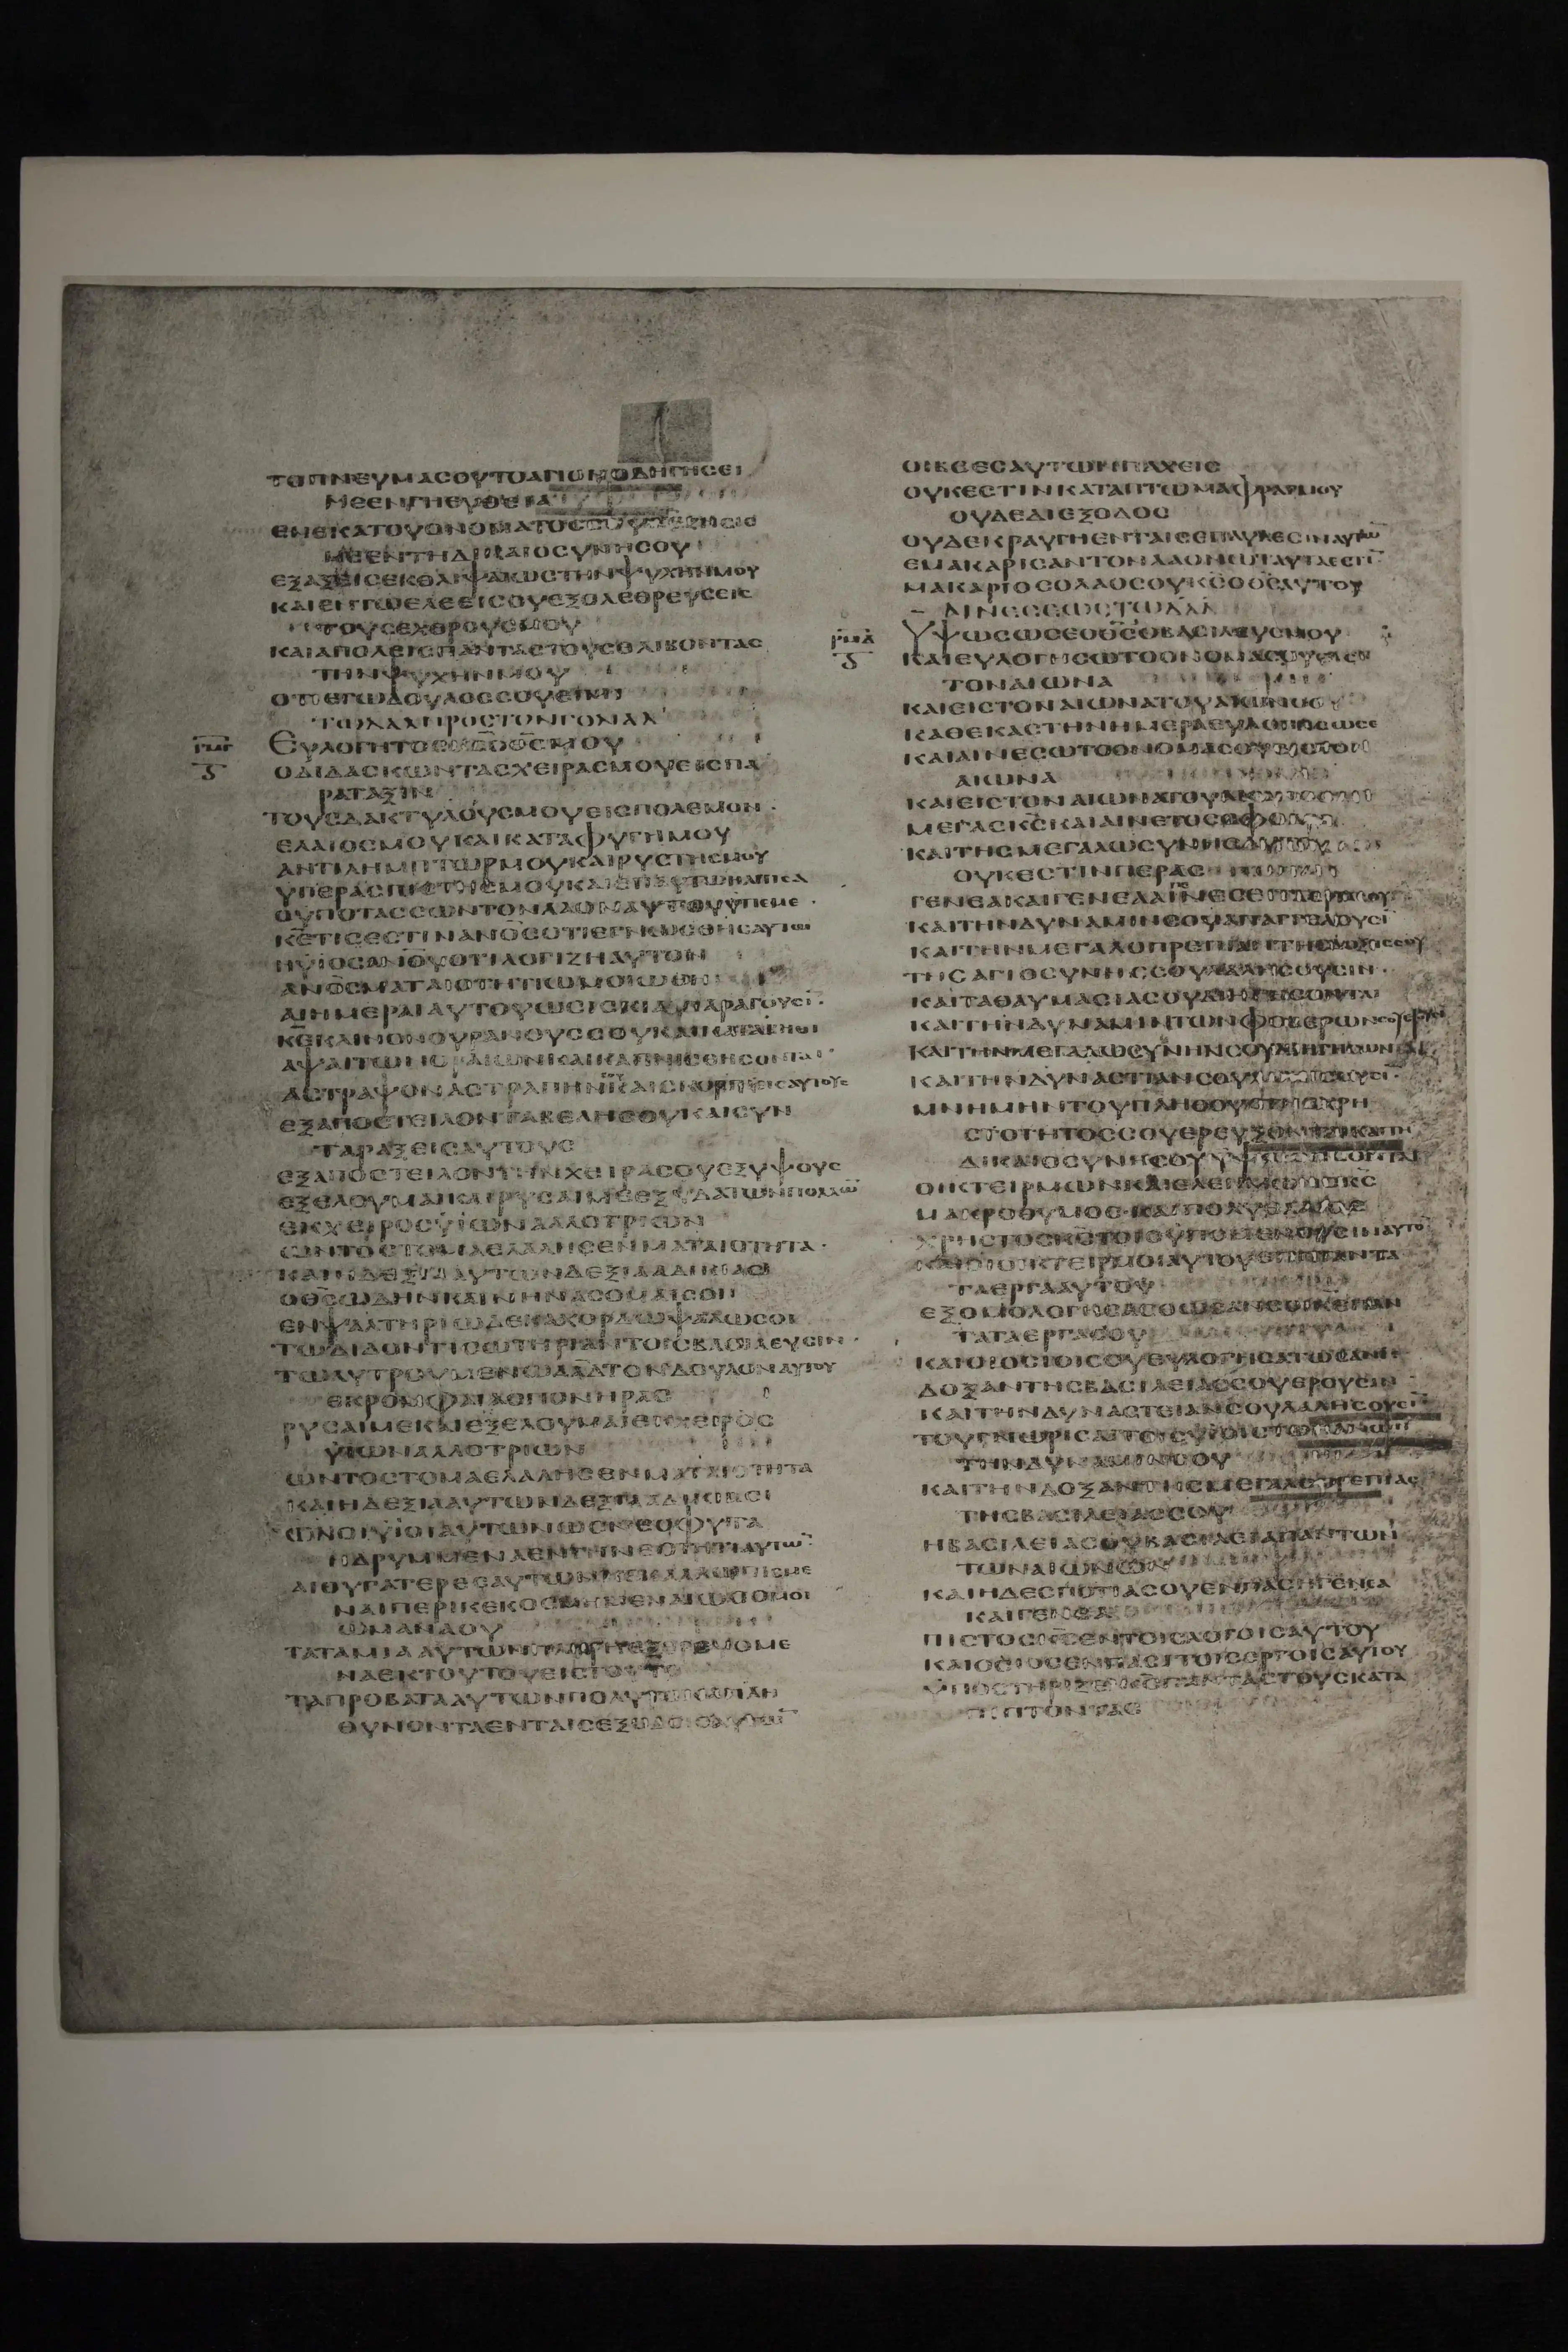 ΤΟΠΝΕΥΜΑΣΟΥΤΟΑΓΙΟΝΟΔΗΓΗΣΕΙ
ΜΕΕΝΓΗΕΥΘΕΙΑ
ΕΝΕΚΑΤΟΥΟΝΟΜΑΤΟΣΣΟΥ
ΜΕΕΝΤΗΔΙΚΑΙΟΣΥΝΗΣΟΥ
ΕΞΑΞΕΙΣΕΚΘΛΙΨΑΙΩΣΤΗΝΨΥΧΗΝΜΟΥ
ΚΑΙΕΝΤΩΕΛΕΕΙΣΟΥΕΞΟΛΕΘΡΕΥΣΕΙΣ
ΤΟΥΣΕΧΘΡΟΥΣΜΟΥ
ΚΑΙΑΠΟΛΕΙΣΠΑΝΤΑΣΤΟΥΣΘΛΙΒΟΝΤΑΣ
ΤΗΝΨΥΧΗΝΜΟΥ
ΟΤΙΕΓΩΔΟΥΛΟΣΣΟΥΕΙΜΙ
ΤΩΔΑΔΠΡΟΣΤΟΝΓΟΛΙΑΔ
ΡΜΓ ΕΥΛΟΓΗΤΟΣΚΣΟΘΣΜΟΥ
ΟΔΙΔΑΣΚΩΝΤΑΣΧΕΙΡΑΣΜΟΥΕΙΣΠΑ
ΡΑΤΑΞΙΝ
ΤΟΥΣΔΑΚΤΥΛΟΥΣΜΟΥΕΙΣΠΟΛΕΜΟΝ·
ΕΛΑΙΟΣΜΟΥΚΑΙΚΑΤΑΦΥΓΗΜΟΥ
ΑΝΤΙΛΗΜΠΤΩΡΜΟΥΚΑΙΡΥΣΤΗΣΜΟΥ
ΥΠΕΡΑΣΠΙΣΤΗΣΜΟΥΚΑΙΕΠΑΥΤΩΗΛΠΙΣΑ
ΟΥΠΟΤΑΣΣΩΝΤΟΝΛΑΟΝΑΥΤΟΥΥΠΕΜΕ·
ΚΕΤΙΣΕΣΤΙΝΑΝΟΣΟΤΙΕΓΝΩΣΘΗΣΑΥΤΩ
ΗΥΙΟΣΑΝΟΥΟΤΙΛΟΓΙΖΗΑΥΤΟΝ
ΑΝΟΣΜΑΤΑΙΟΤΗΤΙΩΜΟΙΩΘΗ
ΑΙΗΜΕΡΑΙΑΥΤΟΥΩΣΙΣΚΙΑΠΑΡΑΓΟΥΣΙ·
ΚΕΚΛΙΝΟΝΟΥΡΑΝΟΥΣΣΟΥΚΑΙΚΑΤΑΒΗΘΙ
ΑΨΑΙΤΩΝΟΡΑΙΩΝΚΑΙΚΑΠΝΙΣΘΗΣΟΝΤΑΙ
ΑΣΤΡΑΨΟΝΑΣΤΡΑΠΗΝΚΑΙΣΚΟΡΠΙΕΙΣΑΥΤΟΥΣ
ΕΞΑΠΟΣΤΕΙΛΟΝΤΑΒΕΛΗΣΟΥΚΑΙΣΥΝ
ΤΑΡΑΞΕΙΣΑΥΤΟΥΣ
ΕΞΑΠΟΣΤΕΙΛΟΝΤΗΝΧΕΙΡΑΣΟΥΕΞΥΨΟΥΣ
ΕΞΕΛΟΥΜΑΙΚΑΙΡΥΣΑΙΜΕΕΞΥΔΑΤΩΝΠΟΛΛΩ
ΕΚΧΕΙΡΟΣΥΙΩΝΑΛΛΟΤΡΙΩΝ
ΩΝΤΟΣΤΟΜΑΕΛΑΛΗΣΕΝΜΑΤΑΙΟΤΗΤΑ·
ΚΑΙΗΔΕΞΙΑΑΥΤΩΝΔΕΞΙΑΑΔΙΚΙΑΣ
ΟΘΣΩΔΗΝΚΑΙΝΗΝΑΣΟΜΑΙΣΟΙ
ΕΝΨΑΛΤΗΡΙΩΔΕΚΑΧΟΡΔΩΨΑΛΩΣΟΙ
ΤΩΔΙΔΟΝΤΙΣΩΤΗΡΙΑΝΤΟΙΣΒΑΣΙΛΕΥΣΙΝ·
ΤΩΛΥΤΡΟΥΜΕΝΩΔΑΔΤΟΝΔΟΥΛΟΝΑΥΤΟΥ
ΕΚΡΟΜΦΑΙΑΣΠΟΝΗΡΑΣ
ΡΥΣΑΙΜΕΚΑΙΕΞΕΛΟΥΜΑΙΕΚΧΕΙΡΟΣ
ΥΙΩΝΑΛΛΟΤΡΙΩΝ
ΩΝΤΟΣΤΟΜΑΕΛΑΛΗΣΕΝΜΑΤΑΙΟΤΗΤΑ
ΚΑΙΗΔΕΞΙΑΑΥΤΩΝΔΕΞΙΑΑΔΙΚΙΑΣ
ΩΝΟΙΥΙΟΙΑΥΤΩΝΩΣΝΕΟΦΥΤΑ
ΗΔΡΥΜΜΕΝΑΕΝΤΗΝΕΟΤΗΤΙΑΥΤΩ
ΑΙΘΥΓΑΤΕΡΕΣΑΥΤΩΝΚΕΚΑΛΛΩΠΙΣΜΕ
ΝΑΙΠΕΡΙΚΕΚΟΣΜΗΜΕΝΑΙΩΣΟΜΟΙ
ΩΜΑΝΑΟΥ
ΤΑΤΑΜΙΑΑΥΤΩΝΠΛΗΡΗΕΞΕΡΕΥΓΟΜΕ
ΝΑΕΚΤΟΥΤΟΥΕΙΣΤΟΥΤΟ
ΤΑΠΡΟΒΑΤΑΑΥΤΩΝΠΟΛΥΤΟΚΑΠΛΗ
ΘΥΝΟΝΤΑΕΝΤΑΙΣΕΞΟΔΟΙΣΑΥΤΩ
ΟΙΒΟΕΣΑΥΤΩΝΠΑΧΕΙΣ
ΟΥΚΕΣΤΙΝΚΑΤΑΠΤΩΜΑΦΡΑΓΜΟΥ
ΟΥΔΕΔΙΕΞΟΔΟΣ
ΟΥΔΕΚΡΑΥΓΗΕΝΤΑΙΣΕΠΑΥΛΕΣΙΝΑΥΤΩ
ΕΜΑΚΑΡΙΣΑΝΤΟΝΛΑΟΝΩΤΑΥΤΑΕΣΤΙ
ΜΑΚΑΡΙΟΣΟΛΑΟΣΟΥΚΣΟΘΣΑΥΤΟΥ
ΑΙΝΕΣΕΩΣΤΩΔΑΔ
ΡΜΔ ΥΨΩΣΩΣΕΟΘΣΟΒΑΣΙΛΕΥΣΜΟΥ
ΚΑΙΕΥΛΟΓΗΣΩΤΟΟΝΟΜΑΣΟΥΕΙΣ
ΤΟΝΑΙΩΝΑ
ΚΑΙΕΙΣΤΟΝΑΙΩΝΑΤΟΥΑΙΩΝΟΣ
ΚΑΘΕΚΑΣΤΗΝΗΜΕΡΑΕΥΛΟΓΗΣΩΣΕ
ΚΑΙΑΙΝΕΣΩΤΟΟΝΟΜΑΣΟΥΕΙΣΤΟΝ
ΑΙΩΝΑ
ΚΑΙΕΙΣΤΟΝΑΙΩΝΑΤΟΥΑΙΩΝΟΣ
ΜΕΓΑΣΚΣΚΑΙΑΙΝΕΤΟΣΣΦΟΔΡΑ
ΚΑΙΤΗΣΜΕΓΑΛΩΣΥΝΗΣΑΥΤΟΥ
ΟΥΚΕΣΤΙΝΠΕΡΑΣ
ΓΕΝΕΑΚΑΙΓΕΝΕΑΑΙΝΕΣΕΙΤΑΕΡΓΑΣΟΥ
ΚΑΙΤΗΝΔΥΝΑΜΙΝΣΟΥΑΠΑΓΓΕΛΟΥΣΙ
ΚΑΙΤΗΝΜΕΓΑΛΟΠΡΕΠΙΑΝΤΗΣΔΟΞΗΣΣΟΥ
ΤΗΣΑΓΙΟΣΥΝΗΣΣΟΥΛΑΛΗΣΟΥΣΙΝ·
ΚΑΙΤΑΘΑΥΜΑΣΙΑΣΟΥΔΙΗΓΗΣΟΝΤΑΙ
ΚΑΙΤΗΝΔΥΝΑΜΙΝΤΩΝΦΟΒΕΡΩΝΣΟΥΕΡΟΥ
ΚΑΙΤΗΝΜΕΓΑΛΩΣΥΝΗΝΣΟΥΔΙΗΓΗΣΟΝΤΑΙ
ΚΑΙΤΗΝΔΥΝΑΣΤΙΑΝΣΟΥΛΑΛΗΣΟΥΣΙ
ΜΝΗΜΗΝΤΟΥΠΛΗΘΟΥΣΤΗΣΧΡΗ
ΣΤΟΤΗΤΟΣΣΟΥΕΡΕΥΞΟΝΤΑΙΚΑΙΤΗ
ΔΙΚΑΙΟΣΥΝΗΣΟΥΥΨΩΘΗΣΟΝΤΑΙ
ΟΙΚΤΕΙΡΜΩΝΚΑΙΕΛΕΗΜΩΝΟΚΣ
ΜΑΚΡΟΘΥΜΟΣ·ΚΑΙΠΟΛΥΕΛΕΟΣ
ΧΡΗΣΤΟΣΚΣΤΟΙΣΥΠΟΜΕΝΟΥΣΙΝΑΥΤΟ
ΚΑΙΟΙΟΙΚΤΕΙΡΜΟΙΑΥΤΟΥΕΠΙΠΑΝΤΑ
ΤΑΕΡΓΑΑΥΤΟΥ
ΕΞΟΜΟΛΟΓΗΣΑΣΘΩΣΑΝΣΟΙΚΕΠΑΝ
ΤΑΤΑΕΡΓΑΣΟΥ
ΚΑΙΟΙΟΣΙΟΙΣΟΥΕΥΛΟΓΗΣΑΤΩΣΑΝΣΕ
ΔΟΞΑΝΤΗΣΒΑΣΙΛΕΙΑΣΣΟΥΕΡΟΥΣΙΝ
ΚΑΙΤΗΝΔΥΝΑΣΤΕΙΑΝΣΟΥΛΑΛΗΣΟΥΣΙ
ΤΟΥΓΝΩΡΙΣΑΙΤΟΙΣΥΙΟΙΣΤΩΝΑΝΩΝ
ΤΗΝΔΥΝΑΜΙΝΣΟΥ
ΚΑΙΤΗΝΔΟΞΑΝΤΗΣΜΕΓΑΛΟΠΡΕΠΙΑΣ
ΤΗΣΒΑΣΙΛΕΙΑΣΣΟΥ
ΗΒΑΣΙΛΕΙΑΣΟΥΒΑΣΙΛΕΙΑΠΑΝΤΩΝ
ΤΩΝΑΙΩΝΩΝ
ΚΑΙΗΔΕΣΠΟΤΙΑΣΟΥΕΝΠΑΣΗΓΕΝΕΑ
ΚΑΙΓΕΝΕΑ
ΠΙΣΤΟΣΚΣΕΝΤΟΙΣΛΟΓΟΙΣΑΥΤΟΥ
ΚΑΙΟΣΙΟΣΕΝΠΑΣΙΤΟΙΣΕΡΓΟΙΣΑΥΤΟΥ
ΥΠΟΣΤΗΡΙΖΕΙΚΣΠΑΝΤΑΣΤΟΥΣΚΑΤΑ
ΠΙΠΤΟΝΤΑΣ